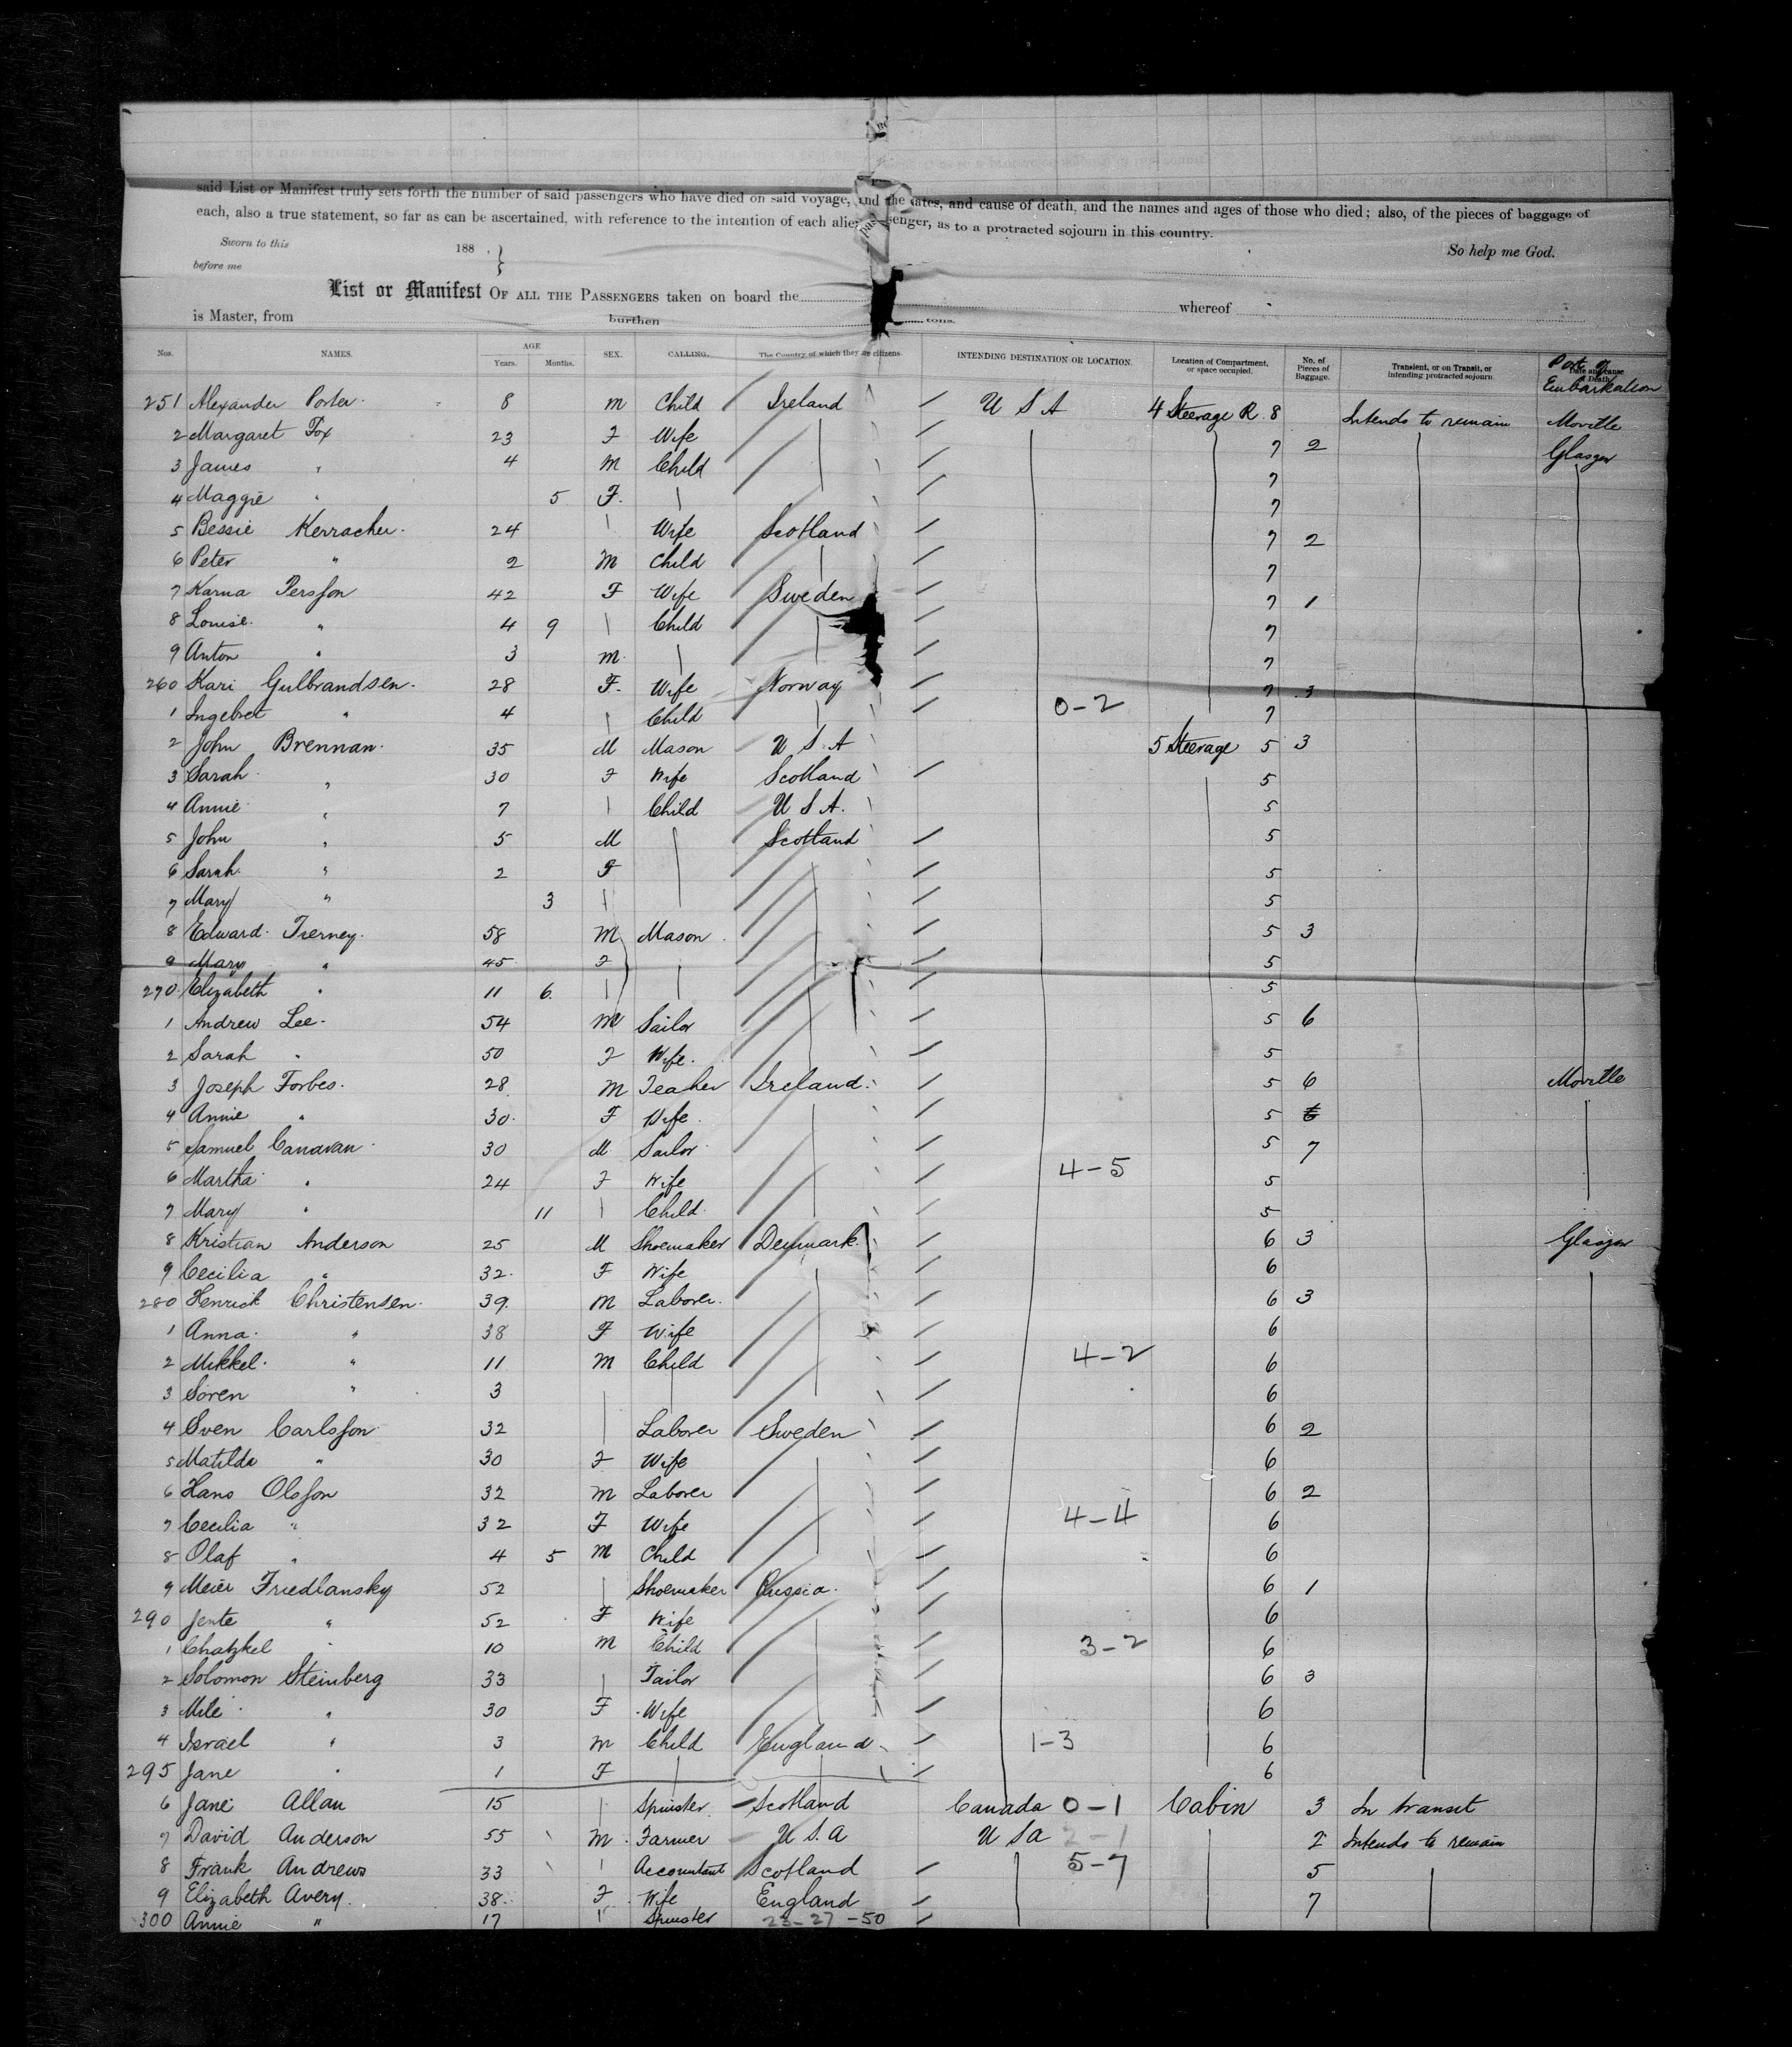 said List or Manifest truly sets forth the number of said passengers who have died on said voyage, and the dates, and cause of death, and the names and ages of those who died; also, of the pieces of baggage of
each, also a true statement, so far as can be ascertained, with reference to the intention of each alien passenger, as to a protracted sojourn in this country.
Sworn to this 188 . } So help me God.
before me
List or Manifest OF ALL THE PASSENGERS taken on board the whereof
is Master, from burthen tons.
Nos. NAMES. AGE Years. Months. SEX. CALLING. The Country of which they are citizens. INTENDING DESTINATION OR LOCATION. Location of Compartment, or space occupied. No. of Pieces of Baggage. Transient, or on Transit, or intending protracted sojourn. Date and cause of Death Port of Embarkation
251 Alexander Porter 8 M Child Ireland / U S A 4 Steerage R. 8 Intends to remain Moville
2 Margaret Fox 23 F Wife / 7 2 Glasgow
3 James " 4 M Child / 7
4 Maggie " 5 F. / 7
5 Bessie Kerracher 24 Wife Scotland / 7 2
6 Peter " 2 M Child / 7
7 Karna Persson 42 F Wife Sweden / 7 1
8 Louise " 4 9 Child / 7
9 Anton " 3 M / 7
260 Kari Gulbrandsen 28 F. Wife Norway / 7 3
1 Ingebret " 4 Child / 0-2 7
2 John Brennan 35 M Mason U S A 5 Steerage 5 3
3 Sarah " 30 F Wife Scotland / 5
4 Annie " 7 Child U S A. 5
5 John " 5 M Scotland / 5
6 Sarah " 2 F / 5
7 Mary " 3 / 5
8 Edward Tierney 58 M Mason / 5 3
9 Mary " 45 F / 5
270 Elizabeth " 11 6 / 5
1 Andrew Lee 54 M Sailor / 5 6
2 Sarah " 50 F Wife / 5
3 Joseph Forbes 28 M Teaher Ireland / 5 6 Moville
4 Annie " 30 F Wife / 5
5 Samuel Canavan 30 M Sailor / 5 7
6 Martha " 24 F Wife / 4-5 5
7 Mary " 11 Child / 5
8 Kristian Anderson 25 M Shoemaker Denmark / 6 3 Glasgow
9 Cecilia " 32 F Wife / 6
280 Henrick Christensen 39 M Laborer / 6 3
1 Anna " 38 F Wife / 6
2 Mikkel " 11 M Child / 4-2 6
3 Soren " 3 / 6
4 Sven Carlsson 32 Laborer Sweden / 6 2
5 Matilda " 30 F Wife / 6
6 Hans Olsson 32 M Laborer / 6 2
7 Cecilia " 32 F Wife / 4-4 6
8 Olaf " 4 5 M Child / 6
9 Meier Friedlansky 52 Shoemaker Russia / 6 1
290 Jente " 52 F Wife / 6
1 Chatzkel " 10 M Child / 3-2 6
2 Solomon Steinberg 33 Tailor / 6 3
3 Mile " 30 F Wife / 6
4 Israel " 3 M Child England / 1-3 6
295 Jane " 1 F / 6
6 Jane Allan 15 Spinster Scotland Canada 0-1 Cabin 3 In transit
7 David Anderson 55 M Farmer U.S.A U S A 2-1 2 Intends to remain
8 Frank Andrews 33 Accountant Scotland / 5-7 5
9 Elizabeth Avery 38 F Wife England / 7
300 Annie " 17 Spinster 23-27-50 /